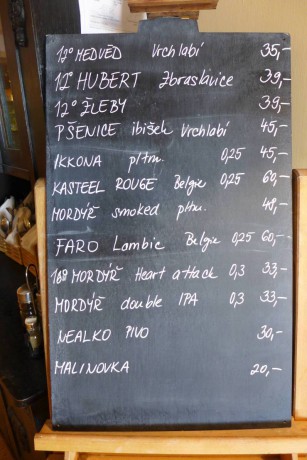 12° MEDVĚD Vrchlabí 35,-
12° HUBERT Zbraslavice 39,-
12° ŽLEBY 39,-
PŠENICE ibišek Vrchlabí 45,-
IKKONA pltm. 0,25 45,-
KASTEEL ROUGE Belgie 0,25 60,-
MORDÝŘ smoked pltm. 48,-
FARO Lambic Belgie 0,25 60,-
18° MORDÝŘ Heart attack 0,3 33,-
MORDÝŘ double IPA 0,3 33,-
NEALKO PIVO 30,-
MALINOVKA 20,-